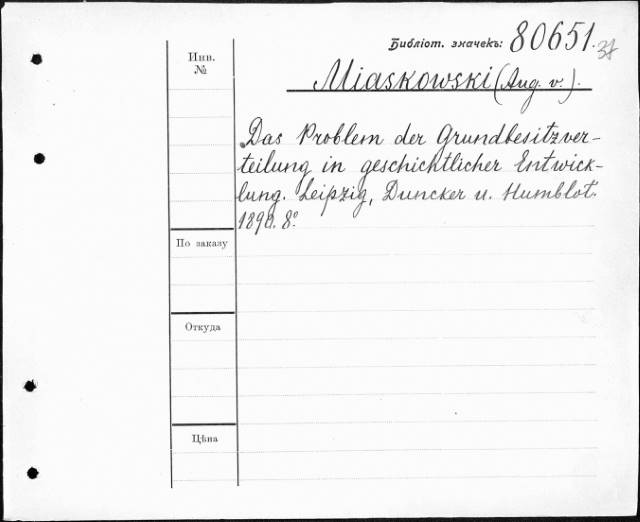 Библіот. значекъ: 80651.
Инв.
№
Miaskowski (Aug. v.).
Das Problem der Grundbesitzver-
teilung in geschichtlicher Entwick-
lung. Leipzig, Duncker u. Humblot.
1890. 8º.
По заказу
Откуда
Цѣна